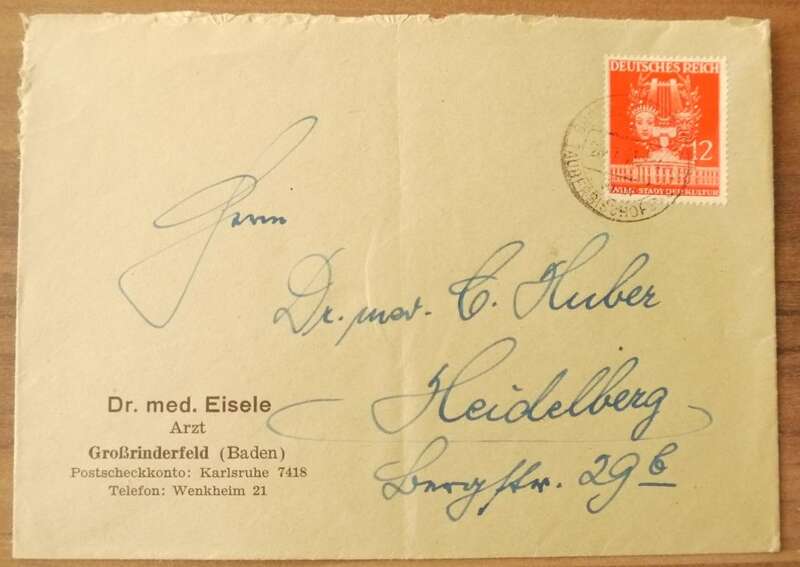 DEUTSCHES REICH
12
WIEN-STADT DER KULTUR
Herrn
Dr. med. C. Huber
Heidelberg
Bergstr. 29 b
Dr. med. Eisele
Arzt
Großrinderfeld (Baden)
Postscheckkonto: Karlsruhe 7418
Telefon: Wenkheim 21